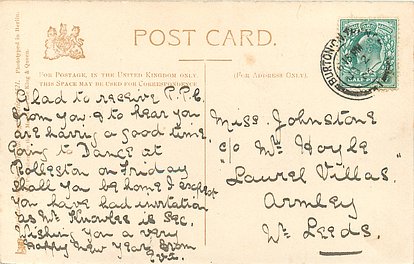 POST CARD.
FOR POSTAGE, IN THE UNITED KINGDOM ONLY,
THIS SPACE MAY BE USED FOR CORRESPONDENCE
(FOR ADDRESS ONLY.)
BURTON-ON-TRENT
Glad to receive P.P.C.
from you & to hear you
are having a good time,
Going to Dance at
Rolleston on Friday
shall you be home I expect
you have had invitation
as Mr Knowles is Sec.
Wishing you a very
Happy New Year from
Miss Johnstone
c/o Mr Hoyle
"Laurel Villas."
Armley
Nr Leeds.
Phototyped in Berlin.